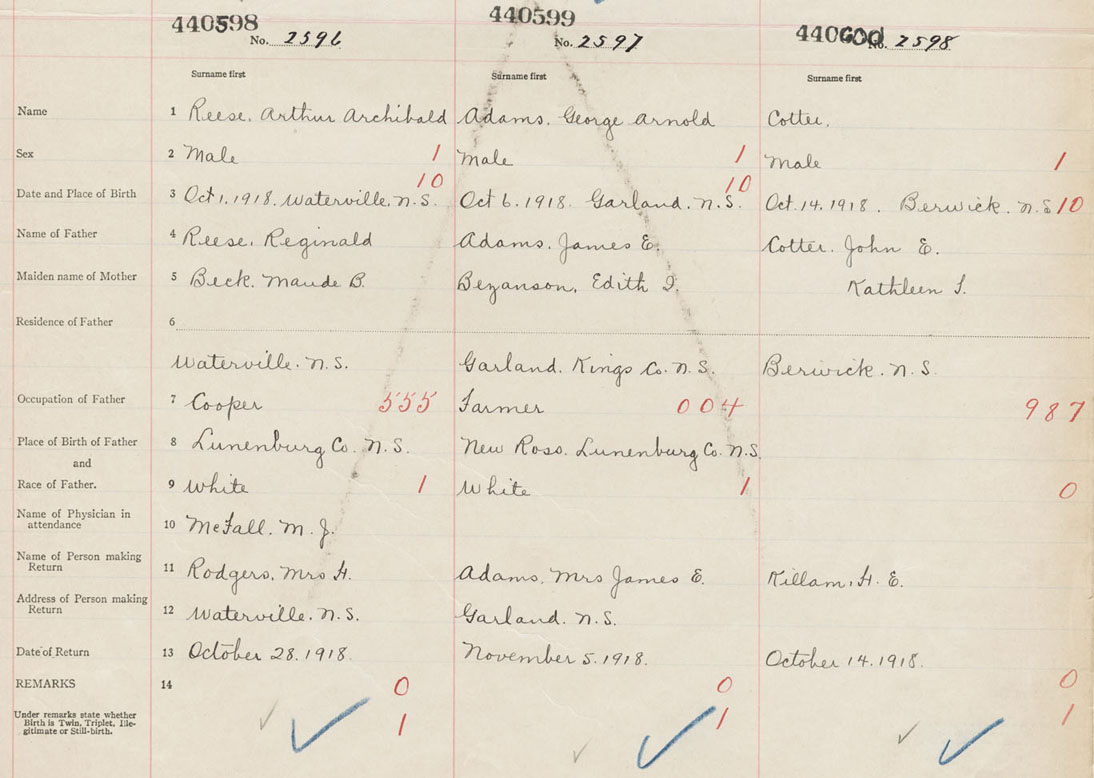 440598 440599 440600
No. 2596 No. 2597 No. 2598
Surname first Surname first Surname first
Name 1 Reese, Arthur Archibald Adams, George Arnold Cotter,
Sex 2 Male 1 Male 1 Male 1
10 10
Date and Place of Birth 3 Oct 1, 1918. Waterville, N.S. Oct 6. 1918. Garland, N.S. Oct. 14. 1918. Berwick. N.S 10
Name of Father 4 Reese, Reginald Adams, James E. Cotter, John E.
Maiden name of Mother 5 Beck, Maude B. Bezanson, Edith I. Kathleen
Residence of Father 6
Waterville. N.S. Garland. Kings Co. N.S. Berwick. N.S.
Occupation of Father 7 Cooper 555 Farmer 004 987
Place of Birth of Father 8 Lunenburg Co. N.S. New Ross. Lunenburg Co. N.S.
and
Race of Father. 9 White 1 White 1 0
Name of Physician in
attendance 10 McFall. M. J.
Name of Person making
Return 11 Rodgers, Mrs H. Adams, Mrs James E. Killam, H. E.
Address of Person making
Return 12 Waterville. N.S. Garland. N.S.
Date of Return 13 October 28. 1918. November 5. 1918. October 14. 1918.
REMARKS 14 0 0 0
Under remarks state whether
Birth is Twin, Triplet, Ille-
gitimate or Still-birth. 1 1 1